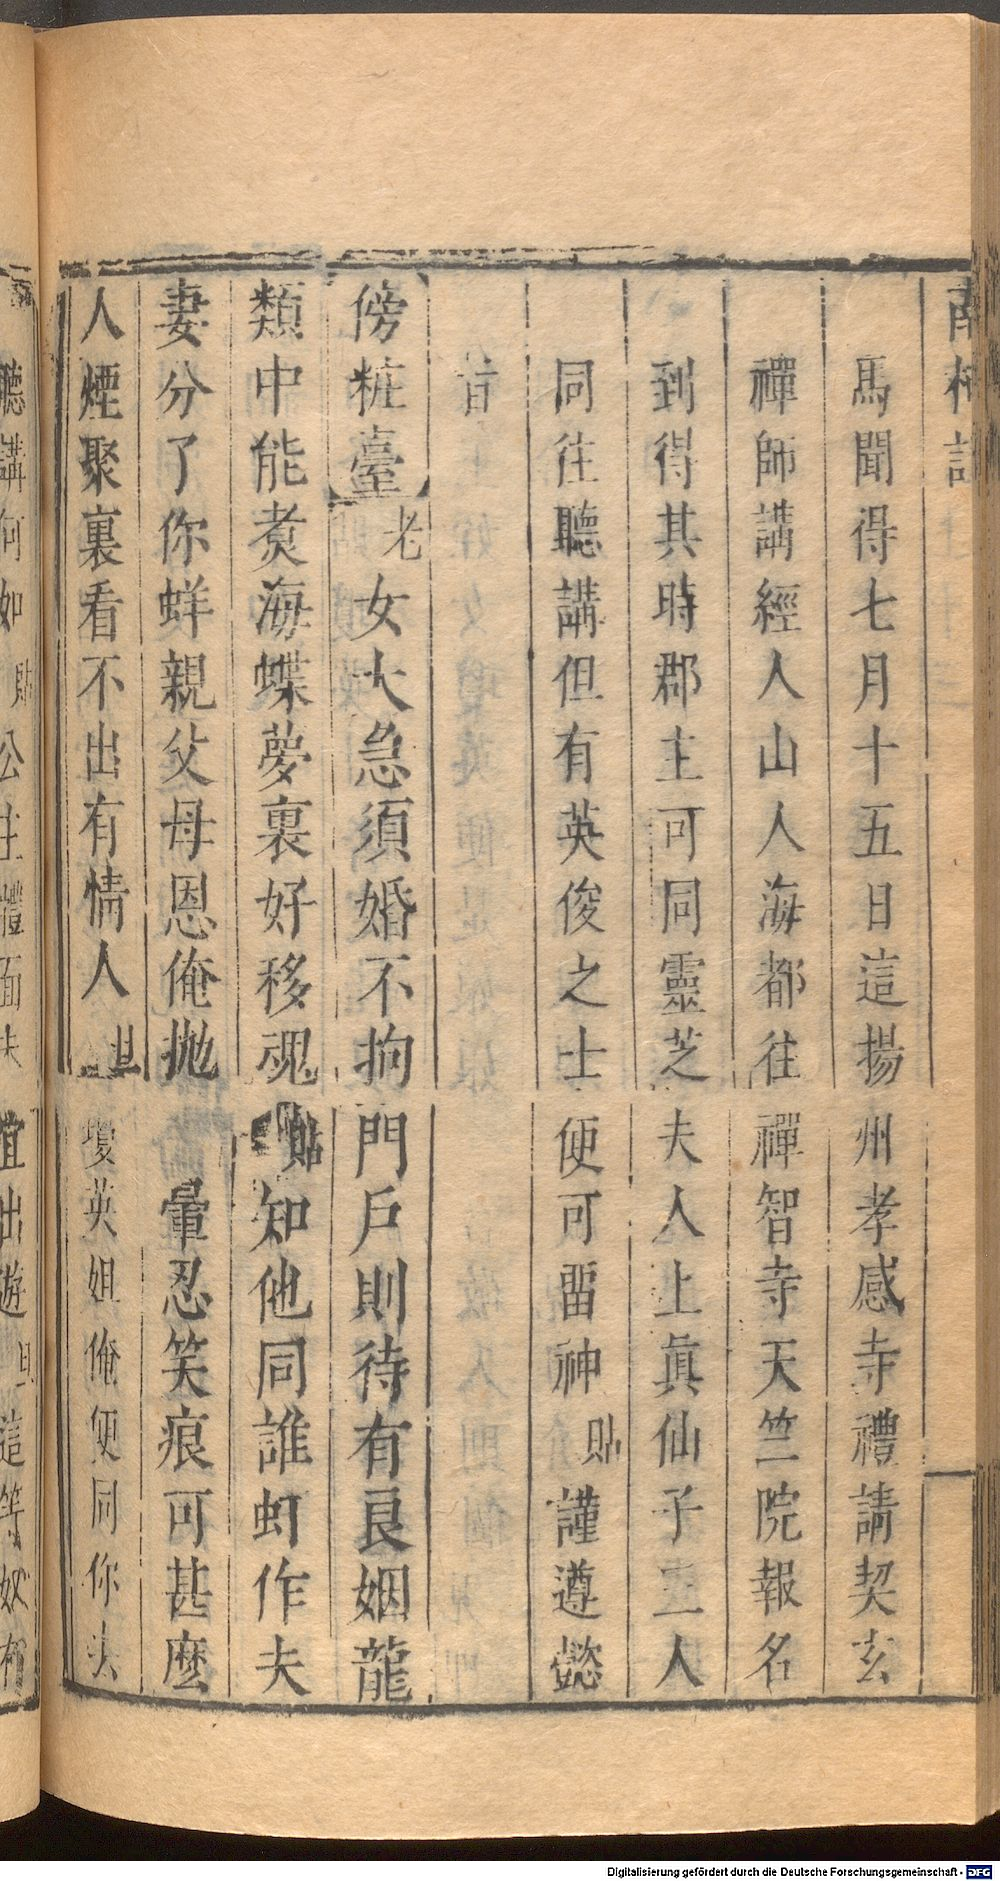 南柯記
馬聞得七月十五日這揚州孝感寺禮請契玄
禪師講經人山人海都往禪智寺天竺院報名
到得其時郡主可同靈芝夫人上眞仙子三人
同往聽講但有英俊之士便可畱神貼謹遵懿
旨
傍粧臺老女大急須婚不拘門戶則待有良姻龍
類中能煑海蝶夢裏好移魂貼知他同誰虰作夫
妻分了你蛘親父母恩俺抛暈忍笑痕可甚麽
人煙聚裏看不出有情人旦瓊英姐俺便同你去
聽講何如貼公主體面未宜出遊旦這等奴有
Digitalisierung gefördert durch die Deutsche Forschungsgemeinschaft - DFG